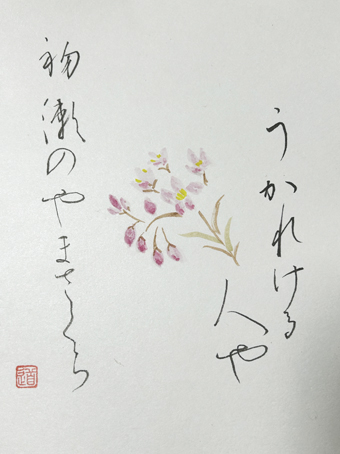 うかれける
人や
初瀬のやまさくら